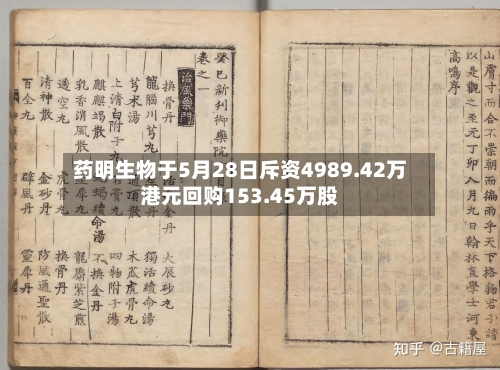 药明生物于5月28日斥资4989.42万
港元回购153.45万股
山膚寸而合不崇朝而雨乎天下格物君子請
以是觀之至元丁卯八月九日翰林直學士河東
高鳴序
癸巳新刊御藥院
卷之一
治風藥門
換骨丹 大辰砂丸
龍腦川芎丸 獨活續命湯
芎朮湯 木瓜虎骨丸
上清白附子丸 四物附子湯
麒麟竭散 續命湯 不換金丹
乳香消風散 龍麝紫芝煎
透空丸 虎骨丸 換骨丹
清神散 金砂丹 防風通聖散
百金丸 辟風丹 靈犀丹
知乎 @古籍屋